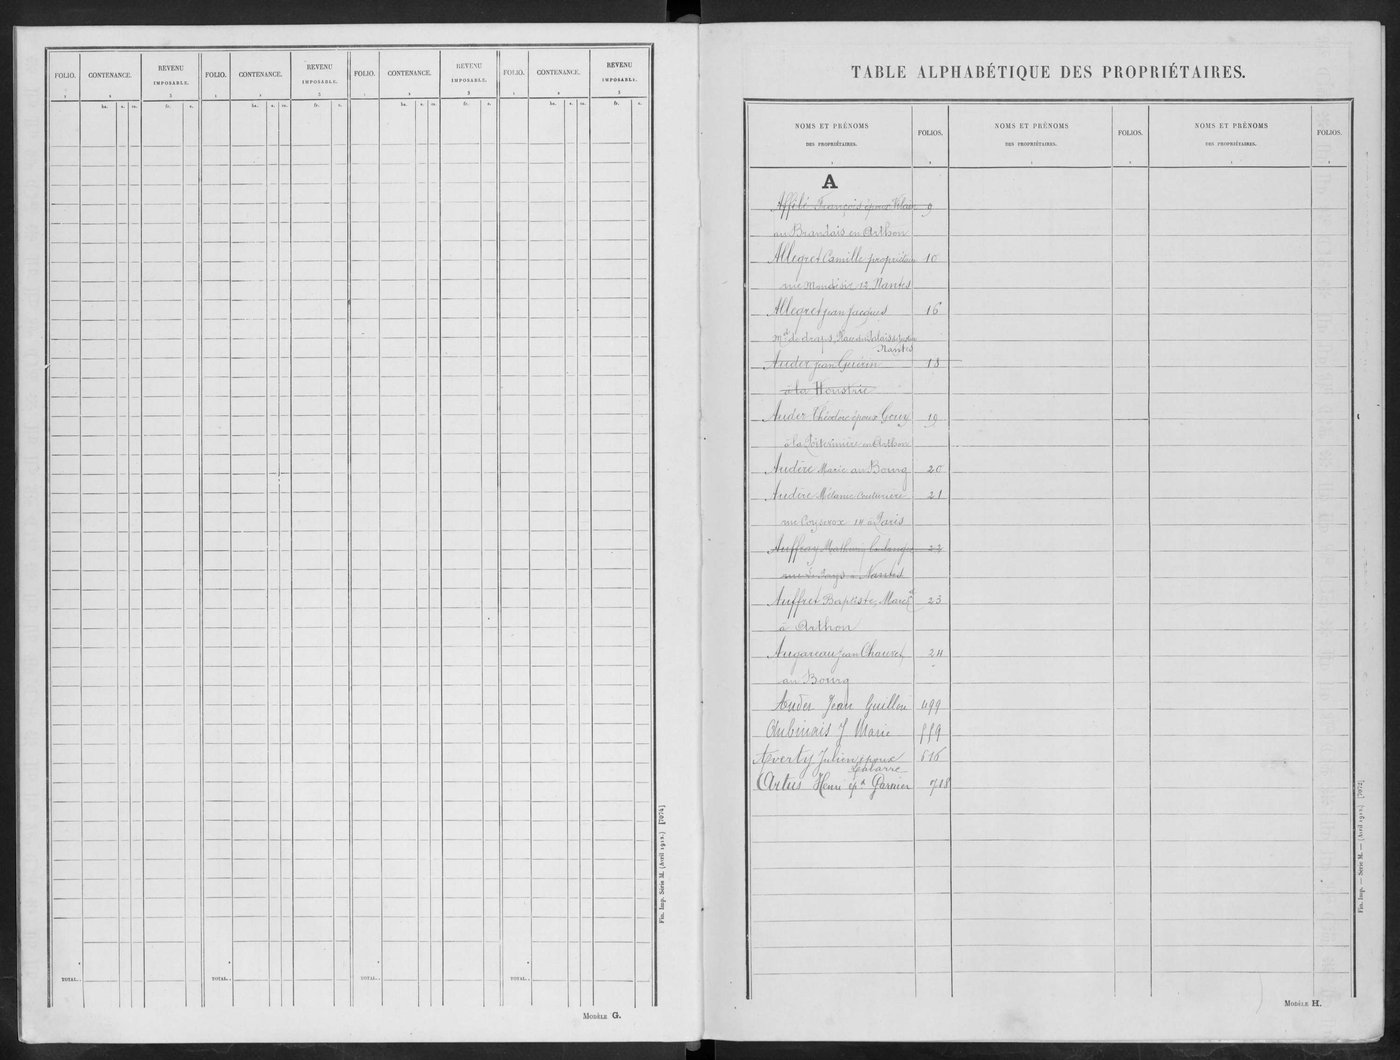 FOLIO. CONTENANCE. REVENU IMPOSABLE. FOLIO. CONTENANCE. REVENU IMPOSABLE. FOLIO. CONTENANCE. REVENU IMPOSABLE. FOLIO. CONTENANCE. REVENU IMPOSABLE.
1 2 3 1 2 3 1 2 3 1 2 3
ha. a. ca. fr. c. ha. a. ca. fr. c. ha. a. ca. fr. c. ha. a. ca. fr. c.
TOTAL. TOTAL. TOTAL. TOTAL.
MODÈLE G.
Fin. Imp. Série M. (Avril 1912.) [7074]
TABLE ALPHABÉTIQUE DES PROPRIÉTAIRES.
NOMS ET PRÉNOMS DES PROPRIÉTAIRES. FOLIOS. NOMS ET PRÉNOMS DES PROPRIÉTAIRES. FOLIOS. NOMS ET PRÉNOMS DES PROPRIÉTAIRES. FOLIOS.
A
Affilé François époux 9
au Brandais en Arthon
Allegret Camille propriétaire 10
rue 12 Nantes
Allegret Jean Jacques 16
md de draps, Place du Palais de justice
Nantes
Auder Jean Guérin 18
à la Houstrie
Auder Théodore époux Gouy 19
à la en Arthon
Audere Marie au Bourg 20
Audere Mélanie couturière 21
rue Coysevox 14 à Paris
Auffray Mathurin boulanger 22
rue à Nantes
Auffret Baptiste, 23
à Arthon
Augareau Jean Chauvet 24
au Bourg
Auder Jean Guillou 499
Aubinais J Marie 559
Averty Julien époux 616
Labarre
Artus Henri épx Garnier 718
MODÈLE H.
Fin. Imp. — Série M. — (Avril 1912.) [7072]